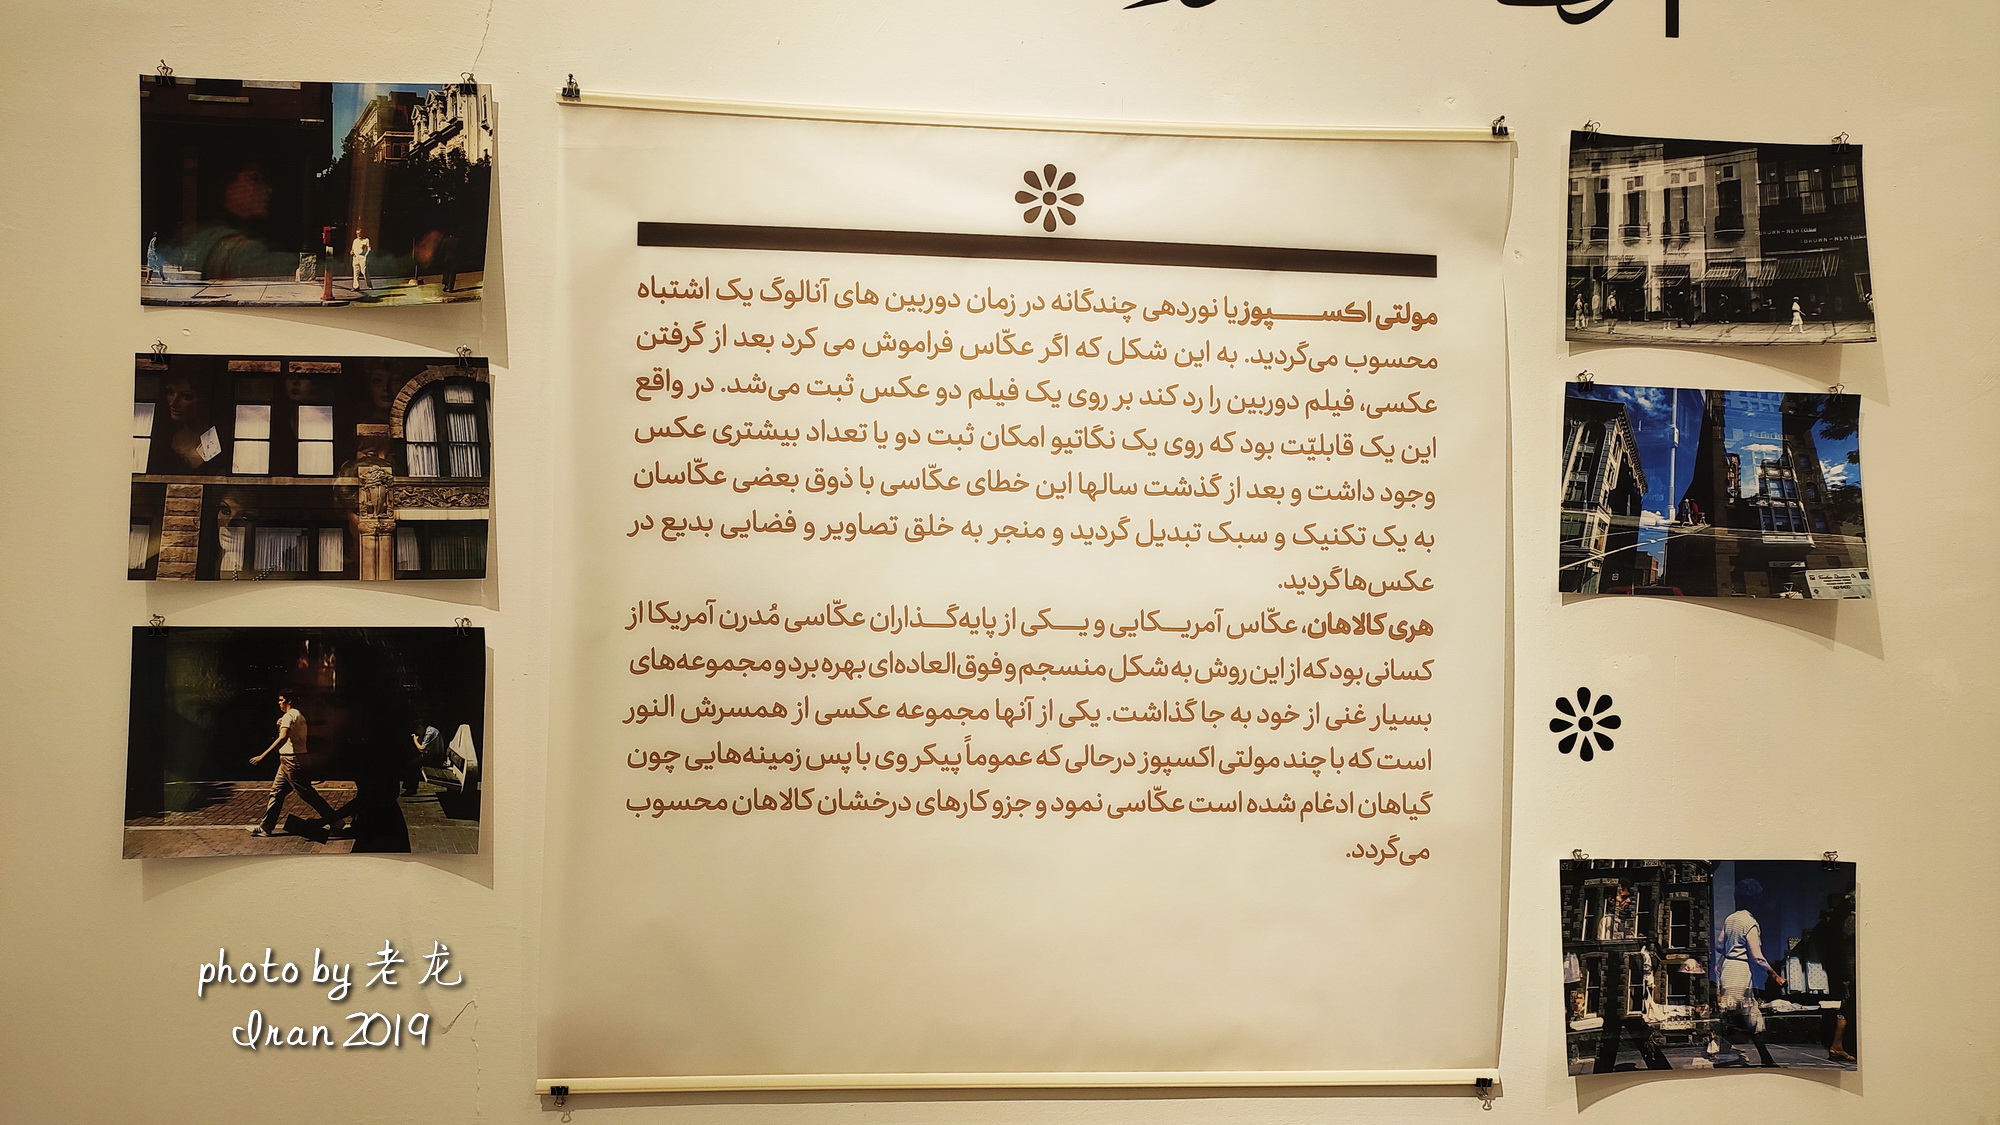 مولتی اکســـــپوز یا نوردهی چندگانه در زمان دوربین های آنالوگ یک اشتباه
محسوب می‌گردید. به این شکل که اگر عکّاس فراموش می کرد بعد از گرفتن
عکسی، فیلم دوربین را رد کند بر روی یک فیلم دو عکس ثبت می‌شد. در واقع
این یک قابلیّت بود که روی یک نگاتیو امکان ثبت دو یا تعداد بیشتری عکس
وجود داشت و بعد از گذشت سالها این خطای عکّاسی با ذوق بعضی عکّاسان
به یک تکنیک و سبک تبدیل گردید و منجر به خلق تصاویر و فضایی بدیع در
عکس‌ها گردید.
هری کالاهان، عکّاس آمریـــکایی و یـــکی از پایه‌گـــذاران عکّاسی مُدرن آمریکا از
کسانی بود که از این روش به شکل منسجم و فوق‌العاده‌ای بهره برد و مجموعه‌های
بسیار غنی از خود به جا گذاشت. یکی از آنها مجموعه عکسی از همسرش النور
است که با چند مولتی اکسپوز درحالی که عموماً پیکر وی با پس زمینه‌هایی چون
گیاهان ادغام شده است عکّاسی نمود و جزو کارهای درخشان کالاهان محسوب
می‌گردد.
photo by 老龙
Iran 2019